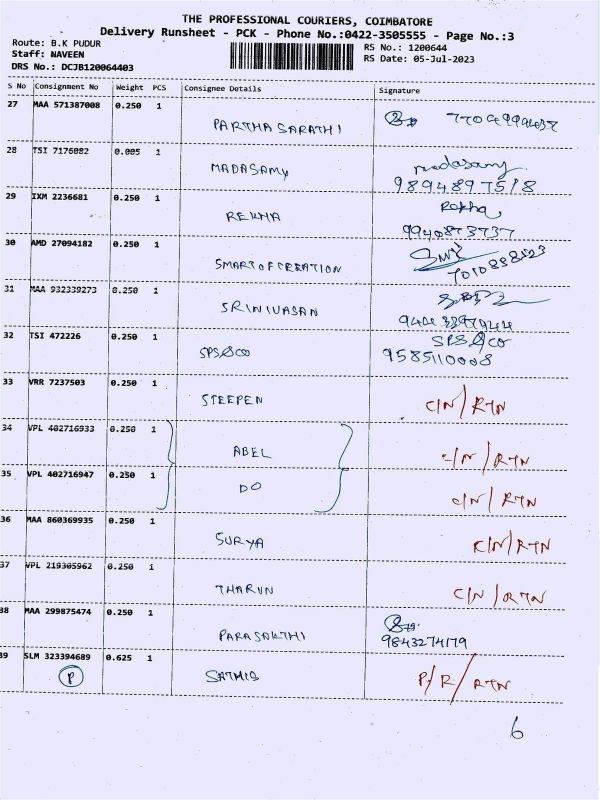 THE PROFESSIONAL COURIERS, COIMBATORE
Delivery Runsheet - PCK - Phone No.:0422-3505555 - Page No.:3
Route: B.K PUDUR RS No.: 1200644
Staff: NAVEEN RS Date: 05-Jul-2023
DRS No.: DCJB120064403
S No Consignment No Weight PCS Consignee Details Signature
27 MAA 571387008 0.250 1
PARTHASARATHI
28 TSI 7176082 0.005 1
MADASAMY madasamy
9894897518
29 IXM 2236681 0.250 1
REKHA Rekha
9940873737
30 AMD 27094182 0.250 1
SMART OF CREATION
31 MAA 932339273 0.250 1
SRINIVASAN
32 TSI 472226 0.250 1 SPS&CO
SPS&CO 9585110008
33 VRR 7237503 0.250 1
STEEPEN C/N/RTN
34 VPL 402716933 0.250 1
ABEL C/N/RTN
35 VPL 402716947 0.250 1
DO C/N/RTN
36 MAA 860369935 0.250 1
SURYA C/N/RTN
37 VPL 219305962 0.250 1
THARUN C/N/RTN
38 MAA 299875474 0.250 1
PARASAKTHI 9843274179
39 SLM 323394689 0.625 1
P SATHIS P/R/RTN
6